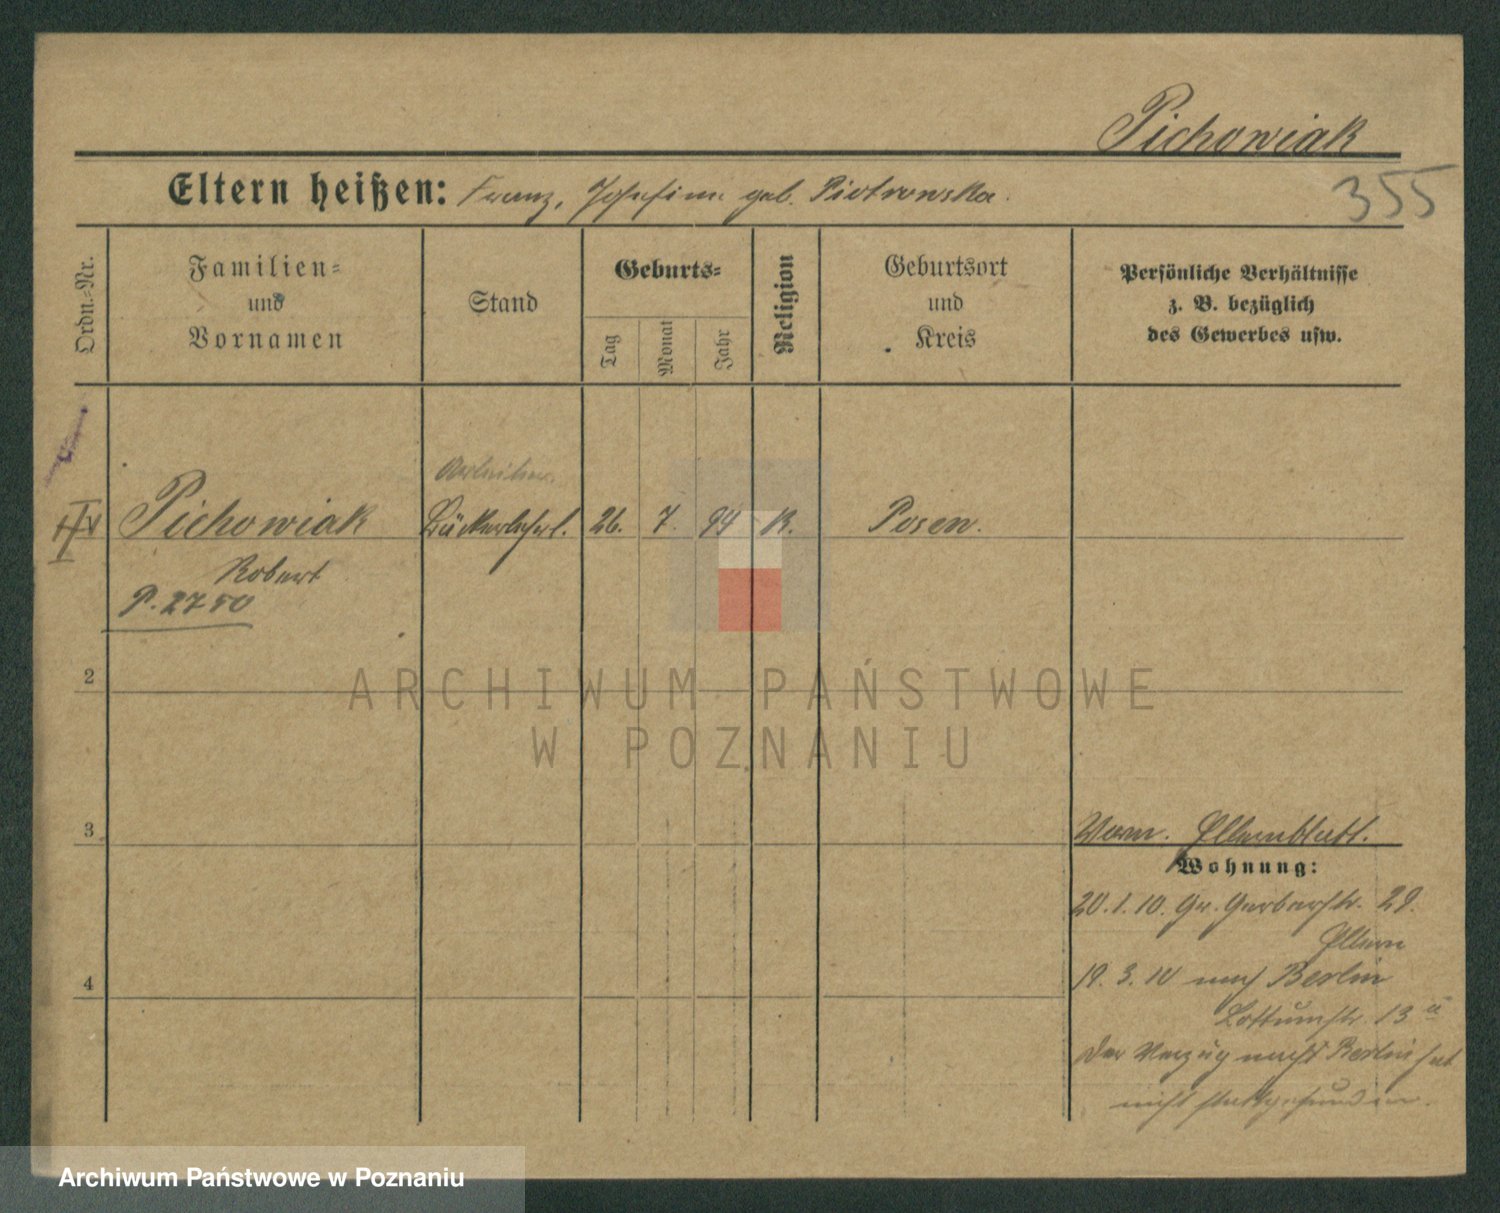 Pichowiak
Eltern heißen: Franz, Josefine geb. Piotrowska.
355
Ordn.-Nr.
Familien-
und
Vornamen
Stand
Geburts-
Tag
Monat
Jahr
Religion
Geburtsort
und
Kreis
Persönliche Verhältnisse
z. B. bezüglich
des Gewerbes usw.
Arbeiter
Pichowiak Bäckerlehrl. 26. 7. 94 K. Posen.
Robert
P. 2750
2
ARCHIWUM PAŃSTWOWE
W POZNANIU
3
Vorm. Elternblatt.
Wohnung:
20.1.10. Gr. Gerberstr. 29.
Eltern
4
19. 3. 10 nach Berlin
Lottumstr. 13
Der Verzug nach Berlin hat
nicht stattgefunden.
Archiwum Państwowe w Poznaniu